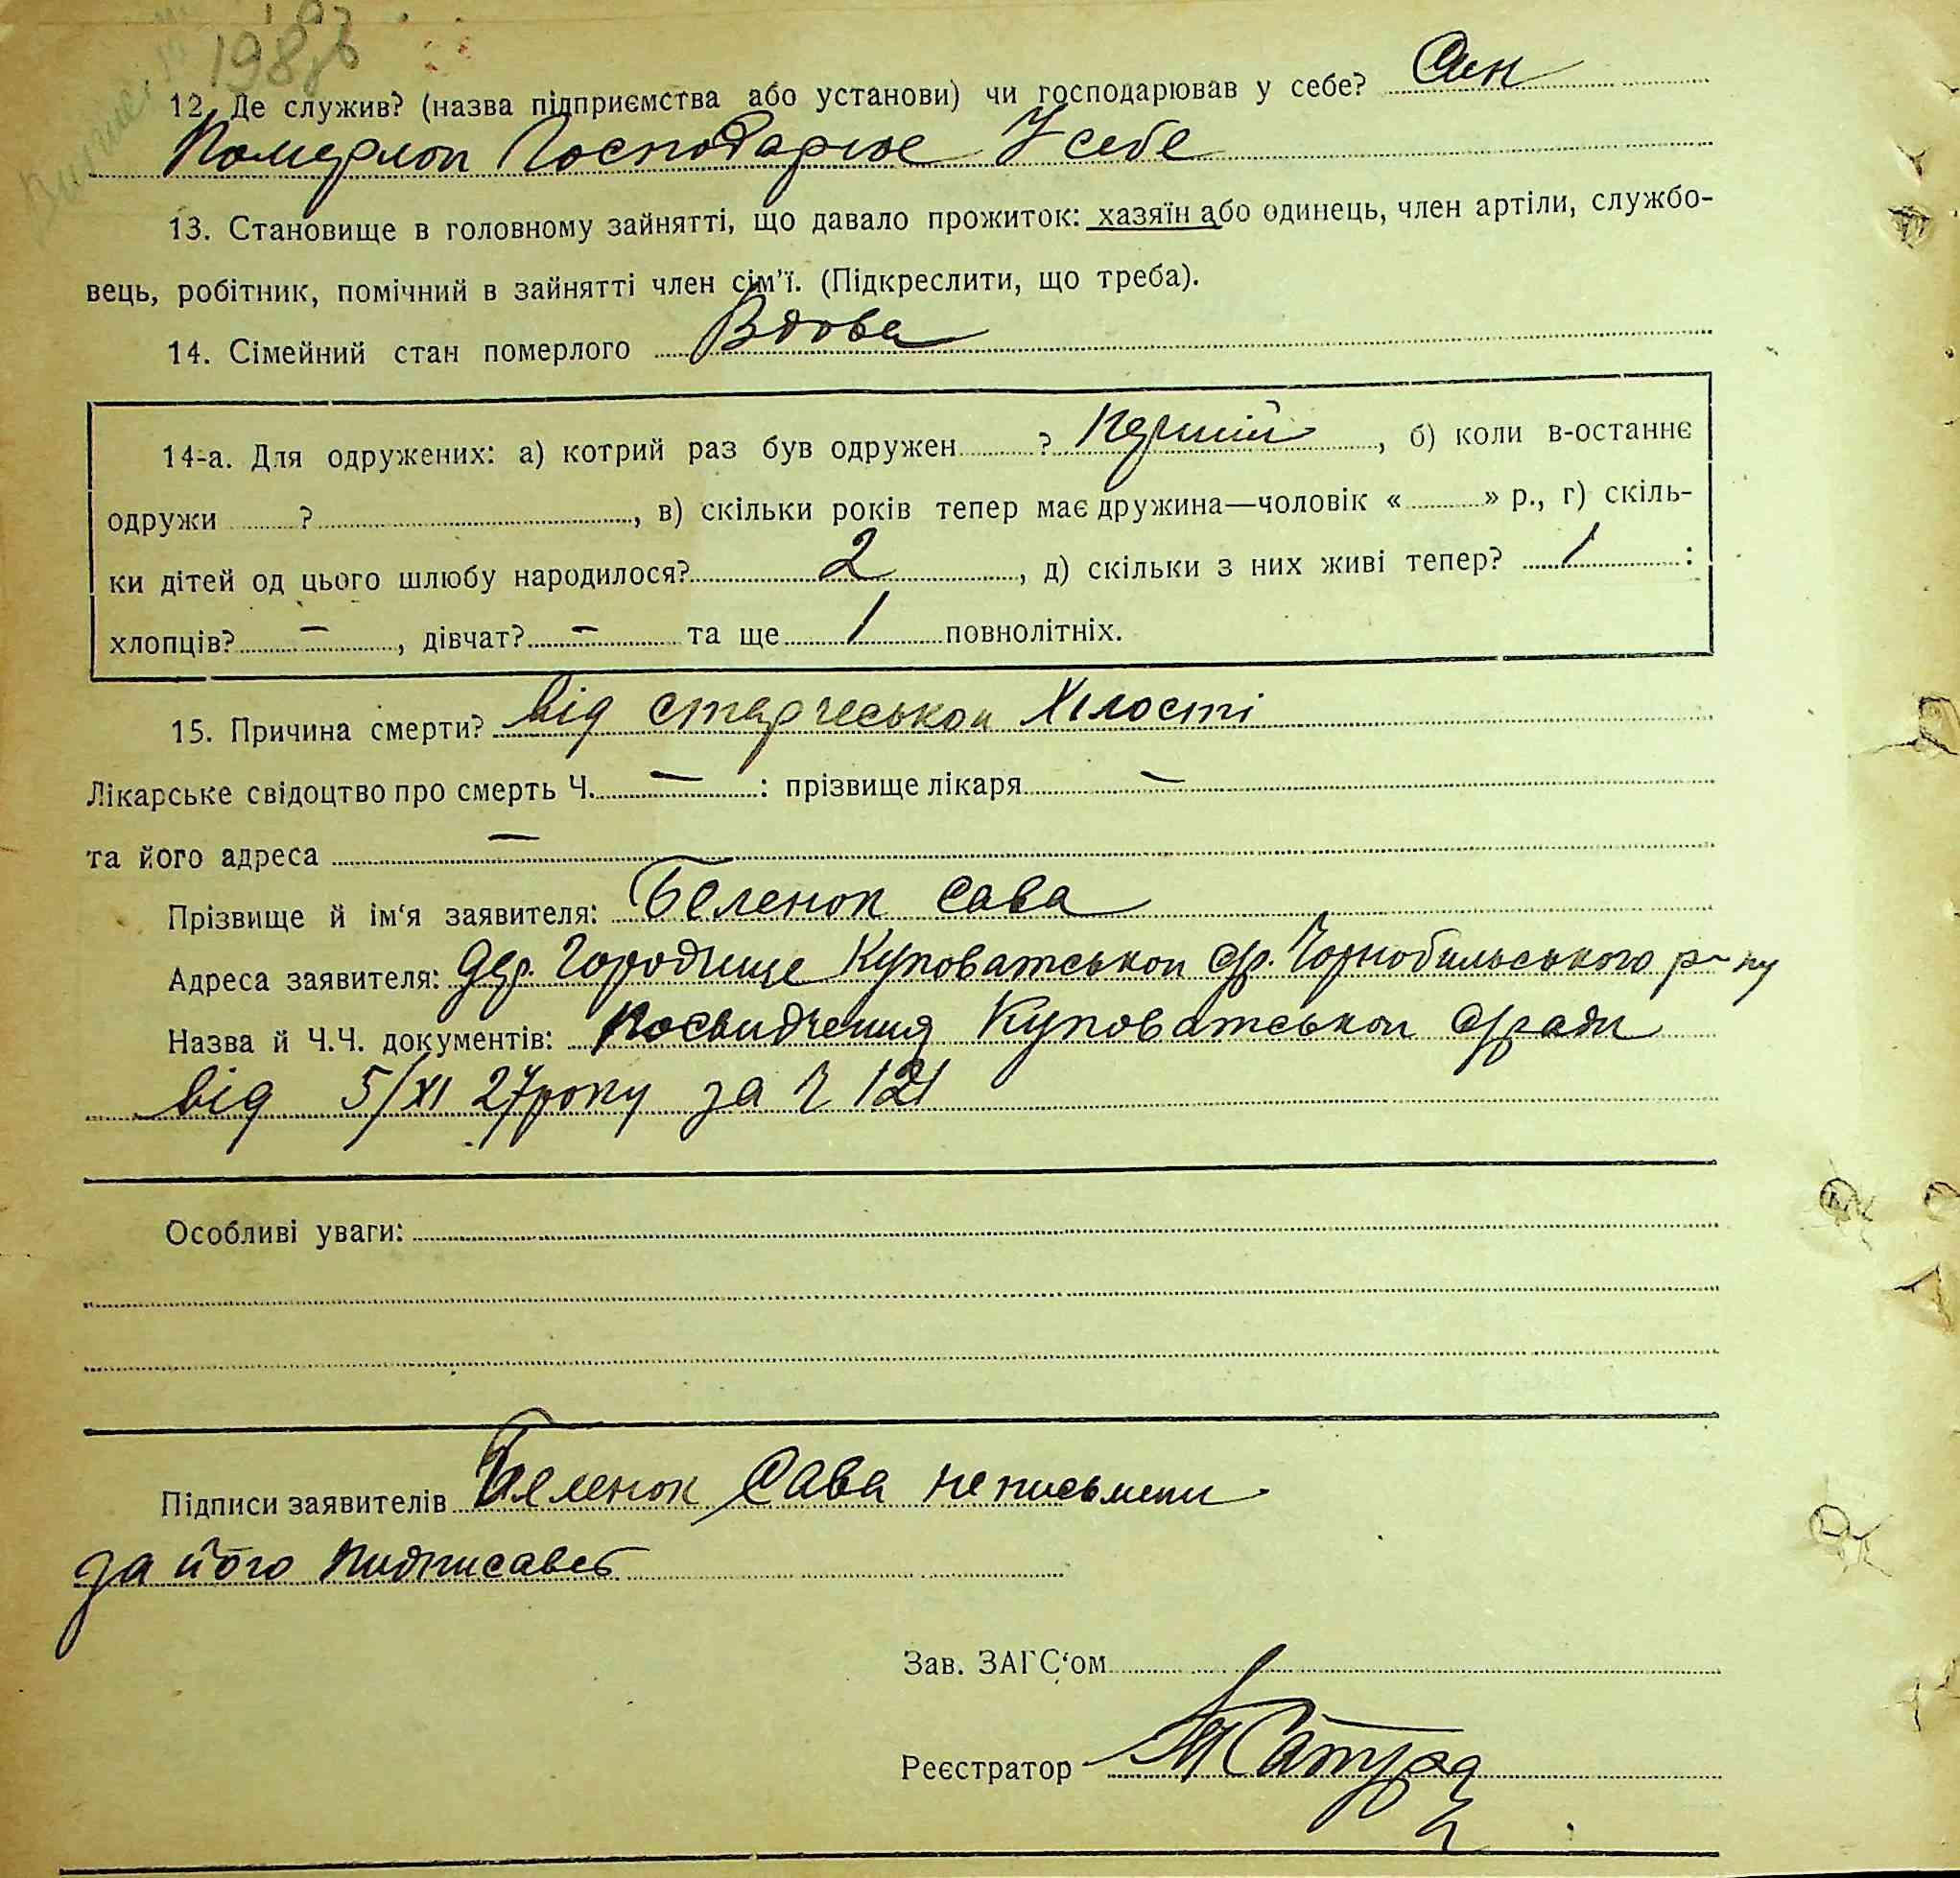 198
12. Де служив? (назва підприємства або установи) чи господарював у себе? Син
Померлои Господарює У себе
13. Становище в головному зайнятті, що давало прожиток: хазяїн або одинець, член артіли, службо-
вець, робітник, помічний в зайнятті член сім'ї. (Підкреслити, що треба).
14. Сімейний стан померлого Вдова
14-а. Для одружених: а) котрий раз був одружен ? Перший, б) коли в-останнє
одружи ? , в) скільки років тепер має дружина—чоловік « » р., г) скіль-
ки дітей од цього шлюбу народилося? 2 , д) скільки з них живі тепер? 1 :
хлопців? – , дівчат? – та ще 1 повнолітніх.
15. Причина смерти? від старческои Хілості
Лікарське свідоцтво про смерть Ч. – : прізвище лікаря –
та його адреса –
Прізвище й ім'я заявителя: Беленок Сава
Адреса заявителя: дер. Городище Куповатськои с/р. Чорнобильського р-ну
Назва й Ч.Ч. документів: Посвидчення Куповатськои с/ради
від 5/XI 27 року за Ч 121
Особливі уваги:
Підписи заявителів Беленок Сава неписьмени
за його пидписавсь
Зав. ЗАГС'ом
Реєстратор